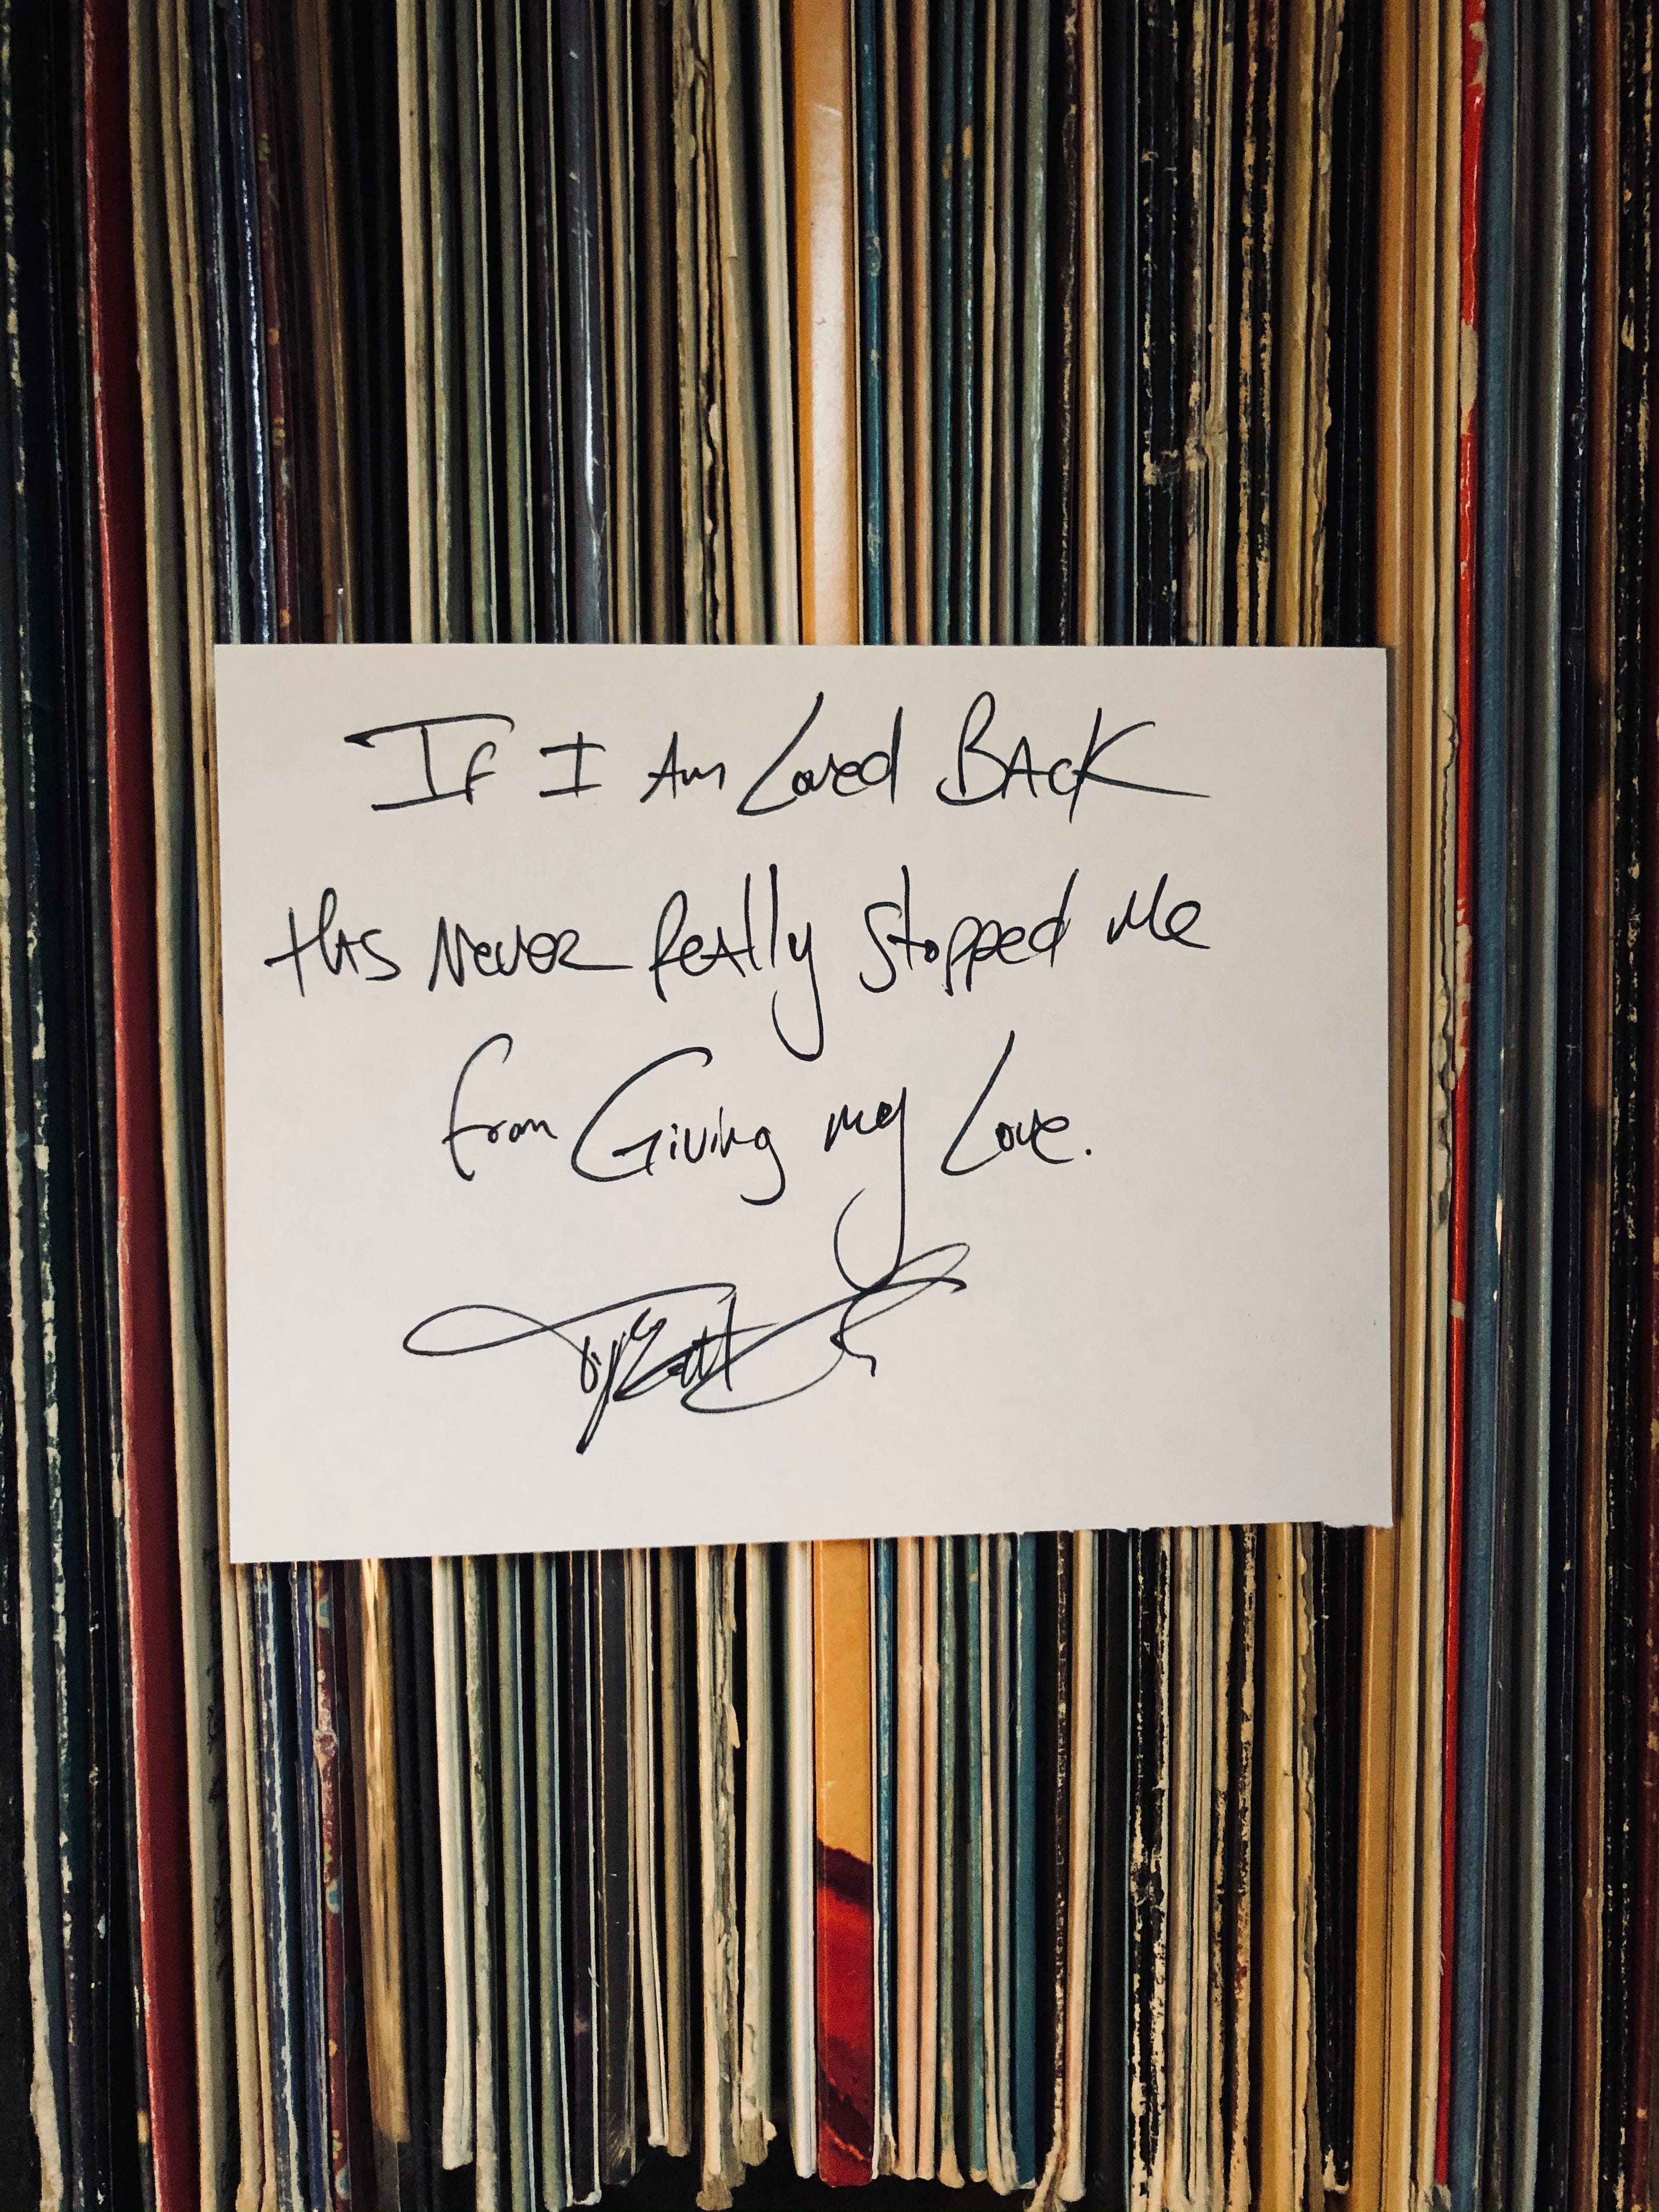 If I Am Loved BAck
HAS Never ReAlly Stopped Me
from Giving my Love.